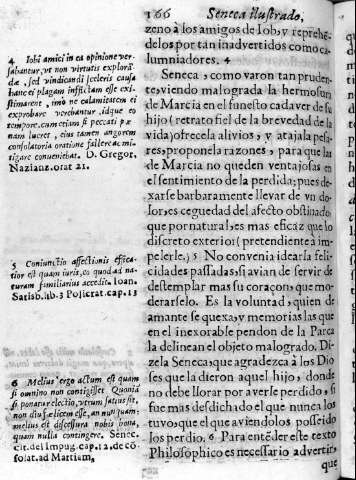 166 Seneca ilustrado,
zenò a los amigos de Iob, y reprehé
delos, por tan inadvertidos como ca-
lumniadores. 4
Seneca, como varon tan pruden
te, viendo malograda la hermosura
de Marcia en el funesto cadaver de su
hijo (retrato fiel de la brevedad de la
vida) ofrecela alivios, y atajala pesa-
res, proponela razones, para que las
de Marcia no queden ventajosas en
el sentimiento de la perdida; pues de
xarse barbaramente llevar de vn do-
lor, es ceguedad del afecto obstinado,
que por natural, es mas eficaz que lo
discreto exterior (pretendiente à im-
pelerle.) 5 No convenia idearla feli-
cidades passadas, si avian de servir de
destemplar mas su coraçon, que mo-
derarselo. Es la voluntad, quien de
amante se quexa, y memorias las que
en el inexorable pendon de la Parca
la delinean el objeto malogrado. Di-
zela Seneca, que agradezca à los Dio
ses que la dieron aquel hijo, donde
no debe llorar por averle perdido, si
fue mas desdichado el que nunca los
tuvo, que el que aviendolos posseido
los perdio. 6 Para entẽder este texto
Philosophico es necessario advertir,
que
4 Iobi amici in ea opinione ver-
sabantur, vt non virtutis explorã-
dæ, sed vindicandi sceleris causa
hanc ei plagam inflictam esse exi-
stimarent, imò ne calamitatem ei
exprobare verebantur, idque eo
tempore, cum etiam si peccati pœ
nam lueret, eius tamen angorem
consolatoria oratione fallere ac mi-
tigare conveniebat. D. Gregor.
Nazianz. orat 21.
5 Coniunctio affectionis effica-
tior est quam iuris, eo quod ad na-
turam familiarius accedit. Ioan.
Sarisb. lib. 3 Policrat. cap. 13
6 Melius ergo actum est quam
si omnino non contigisset. Quoniã
si ponatur electio, vtrum satius sit,
non diu fælicem esse, an nunquam:
melius est discessura nobis bona,
quam nulla contingere. Senec.
cit. del Impug. cap. 12. de cõ-
solat. ad Martiam,